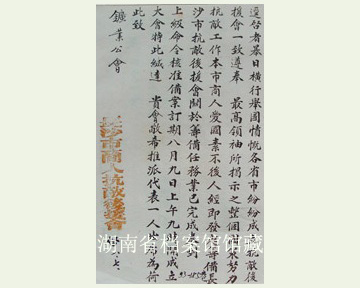 逕啓者暴日橫行舉國憤慨各省市紛紛成立抗敵後
援會一致遵奉 最高領袖所揭示之整個國策努力
抗敵工作本市商人愛國素不後人經即發起籌備長
沙市抗敵後援會關於籌備任務業已完成奉到
上級命令核准備案訂期八月九日上午九時成立
大會特此緘達 貴會敬希推派代表一人為荷
此致
鑛業公會
長沙市商人抗敵後援會
湖南省档案馆馆藏